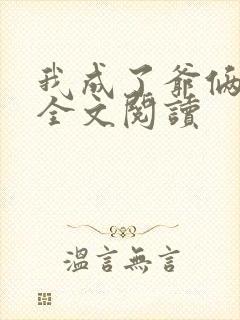 我成了爺倆
全文閱讀
溫言無言